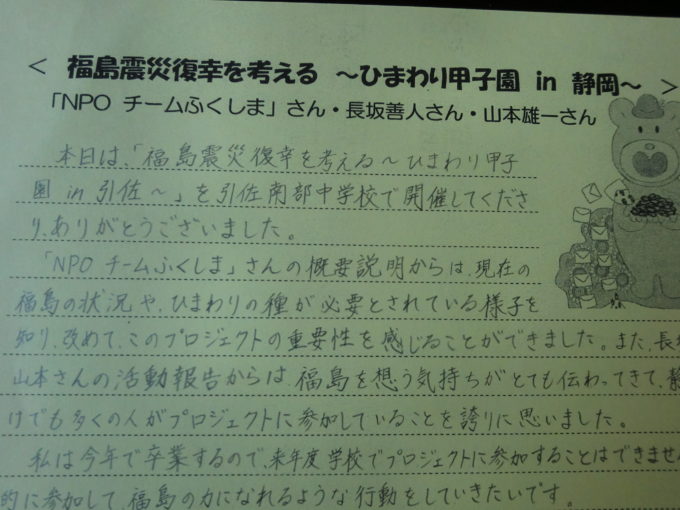 < 福島震災復幸を考える ～ひまわり甲子園 in 静岡～ >
「NPO チームふくしま」さん・長坂善人さん・山本雄一さん
本日は、「福島震災復幸を考える～ひまわり甲子
園 in 引佐～」を引佐南部中学校で開催してくださ
り、ありがとうございました。
「NPO チームふくしま」さんの概要説明からは、現在の
福島の状況や、ひまわりの種が必要とされている様子を
知り、改めて、このプロジェクトの重要性を感じることができました。また、長
山本さんの活動報告からは、福島を想う気持ちがとても伝わってきて、静
けでも多くの人がプロジェクトに参加していることを誇りに思いました。
私は今年で卒業するので、来年度学校でプロジェクトに参加することはできませ
的に参加して、福島の力になれるような行動をしていきたいです。